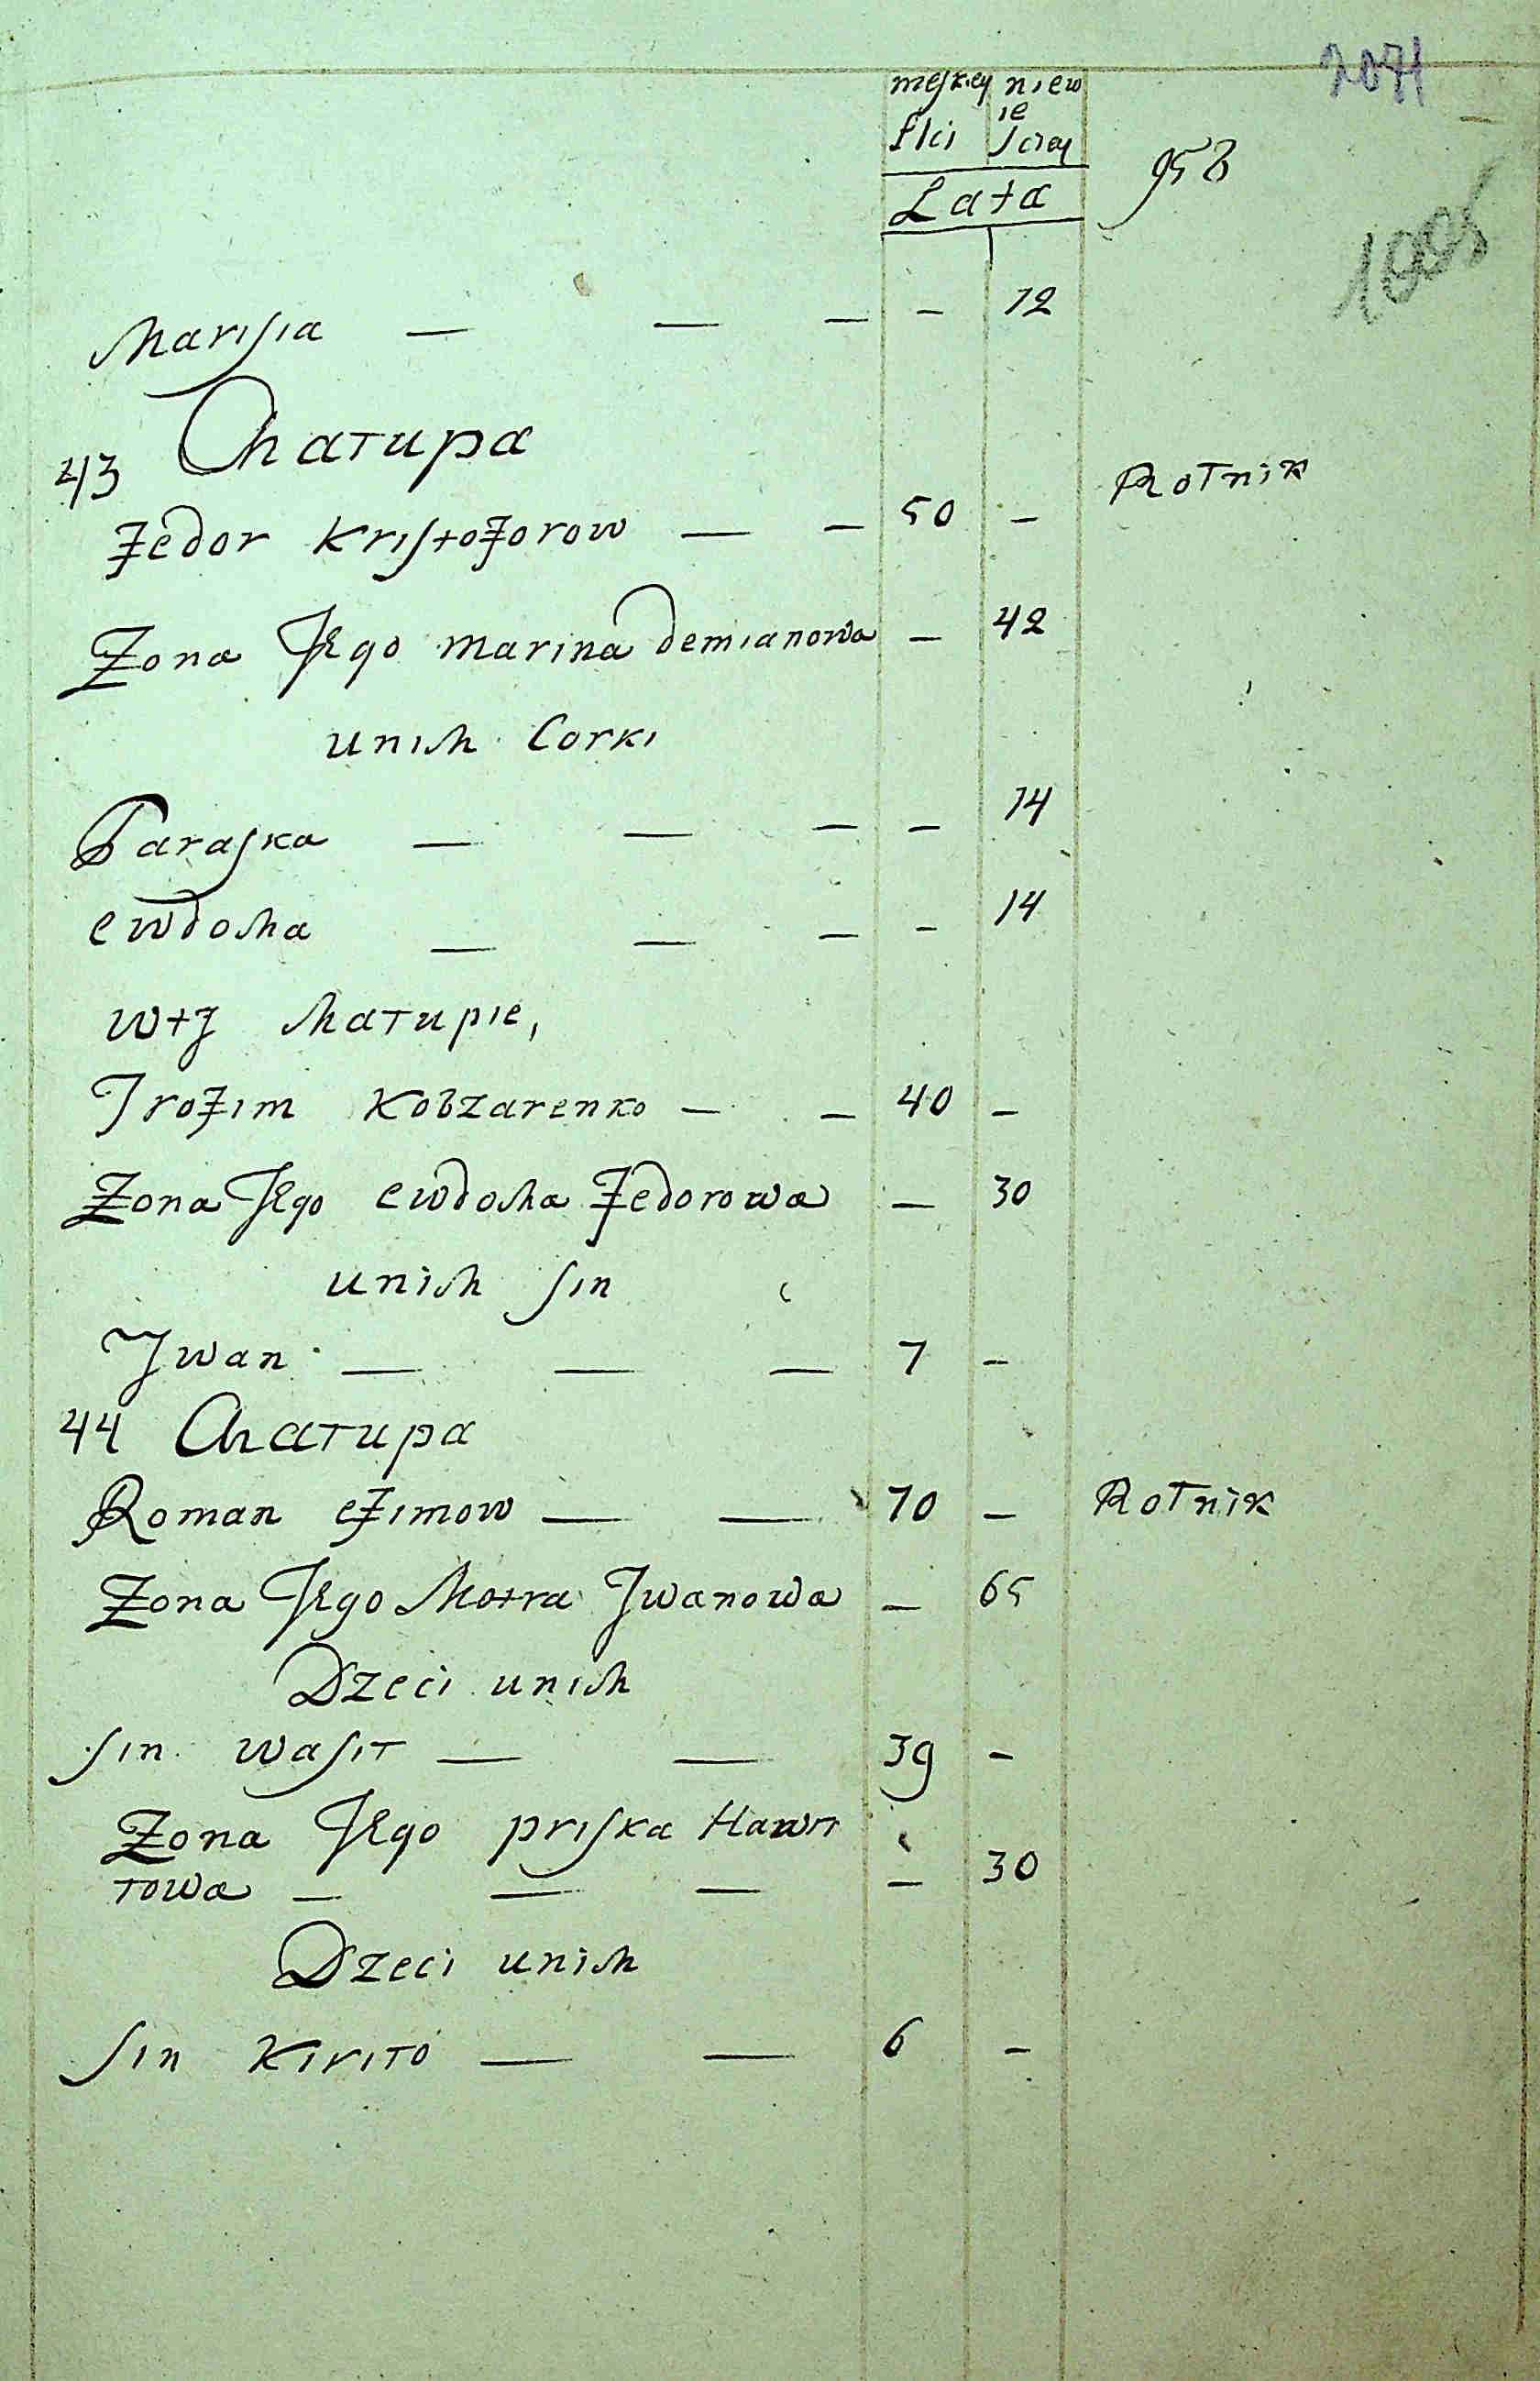 2071
meskiey niew
ie
Płci sciey
Lata
958
Marisia — — — — 12
43 Chałupa
Fedor Kristoforow — — 50 — Rolnik
Żona Jego marina demianowa — 42
unich Corki
Paraska — — — — 14
ewdocha — — — — 14
wtj chałupie,
Trofim Kobzarenko — — 40 —
Żona Jego ewdocha Fedorowa — 30
unich sin
Jwan — — — 7 —
44 Chałupa
Roman efimow — — 70 — Rolnik
Żona Jego Motra Jwanowa — 65
Dzeci unich
sin wasił — — 39 —
Żona Jego priska Hawri
łowa — — — — 30
Dzeci unich
sin Kiriło — — 6 —